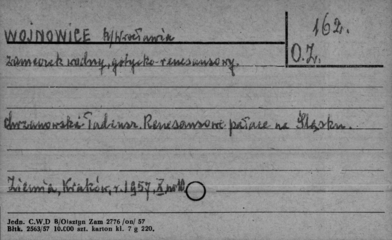 WOJNOWICE k/Wrocławia
162.
O.Z.
zameczek wodny, gotycko-renesansowy.
Chrzanowski Tadeusz. Renesansowe pałace na Śląsku.
Ziemia, Kraków, r. 1957, X,
Jedn. C.W.D B/Olsztyn Zam 2776 /on/ 57
Bltk. 2563/57 10.000 szt. karton kl. 7 g 220.